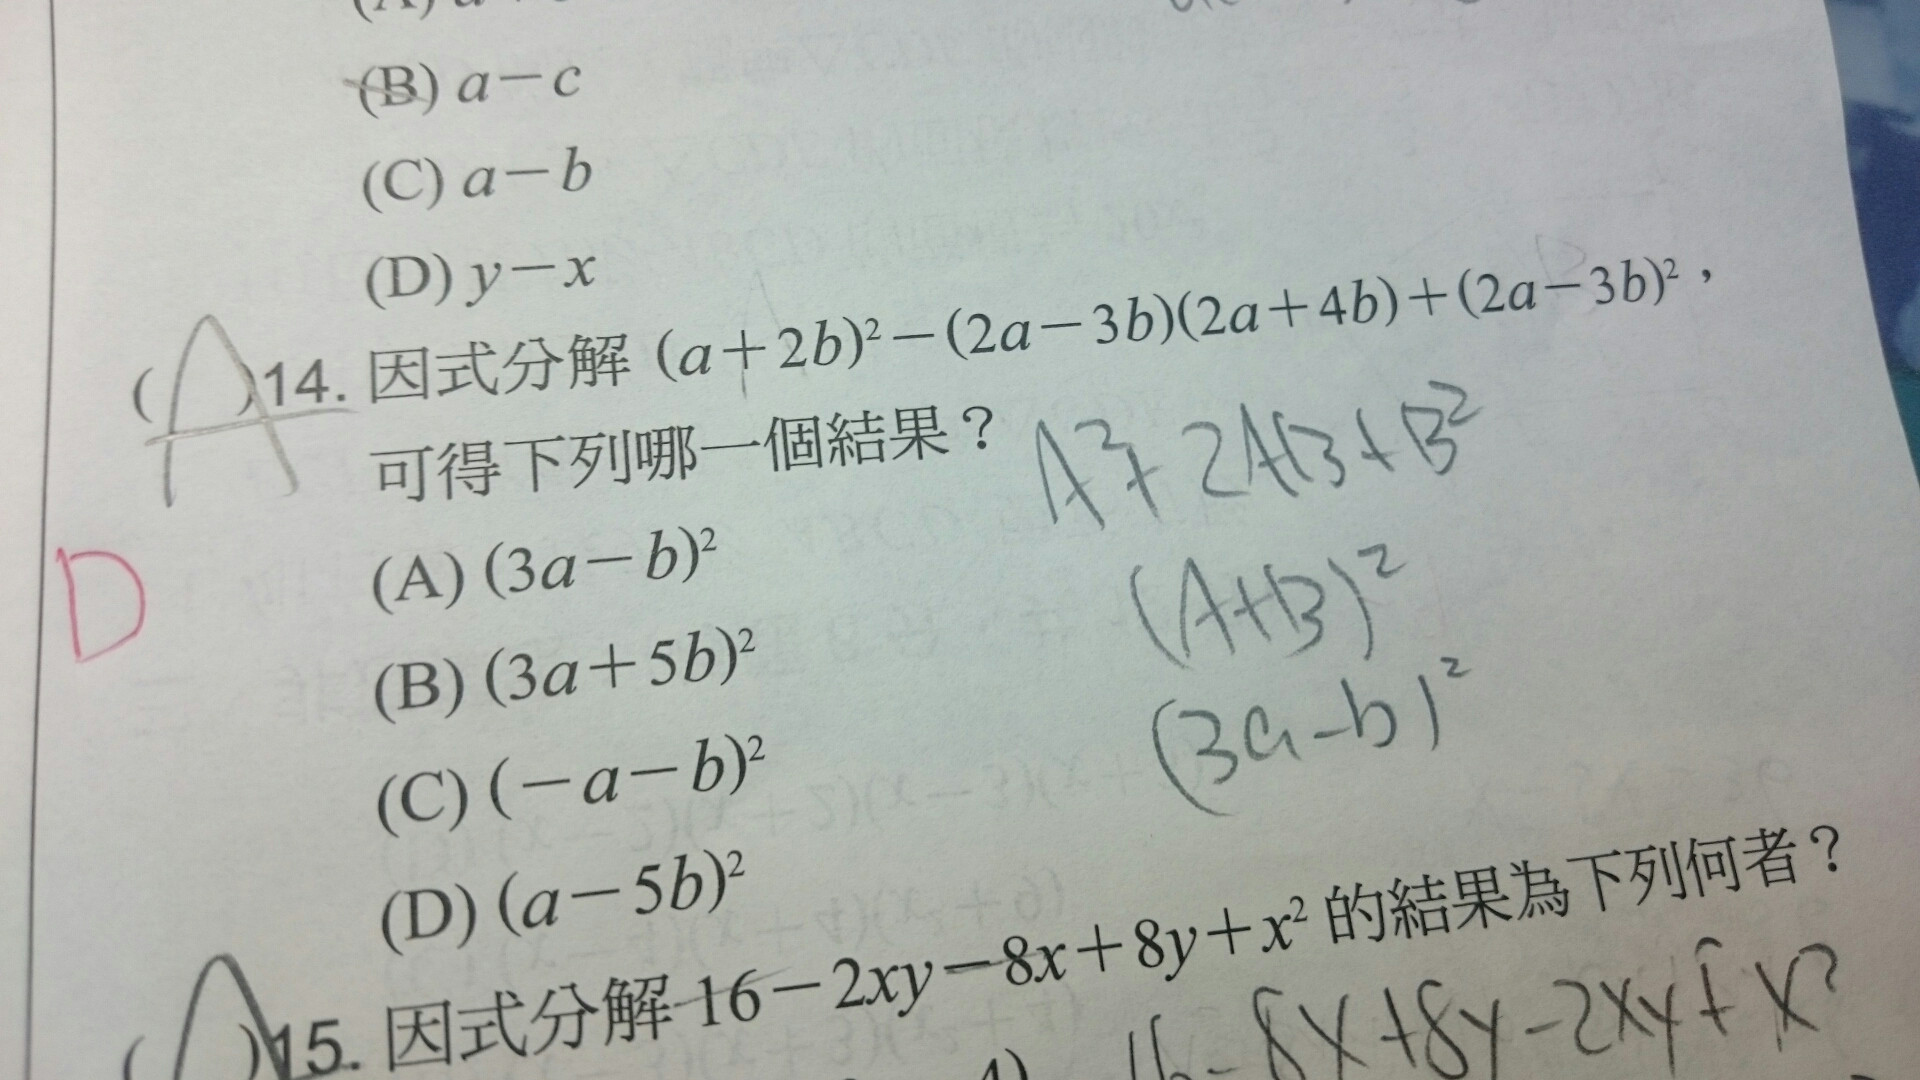 (B) a－c
(C) a－b
(D) y－x
(A)14. 因式分解 (a＋2b)²－(2a－3b)(2a＋4b)＋(2a－3b)²，
可得下列哪一個結果？
A²+2AB+B²
(A) (3a－b)²
(A+B)²
D
(B) (3a＋5b)²
(3a-b)²
(C) (－a－b)²
(D) (a－5b)²
(A)15. 因式分解 16－2xy－8x＋8y＋x² 的結果為下列何者？
16-8x+8y-2xy+x²